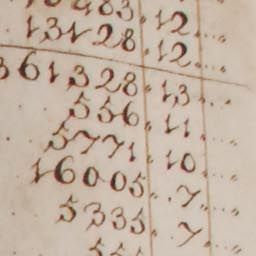 13128.12..."
361328.13..."
556.11..."
5771.10..."
16005.7..."
5335.7..."